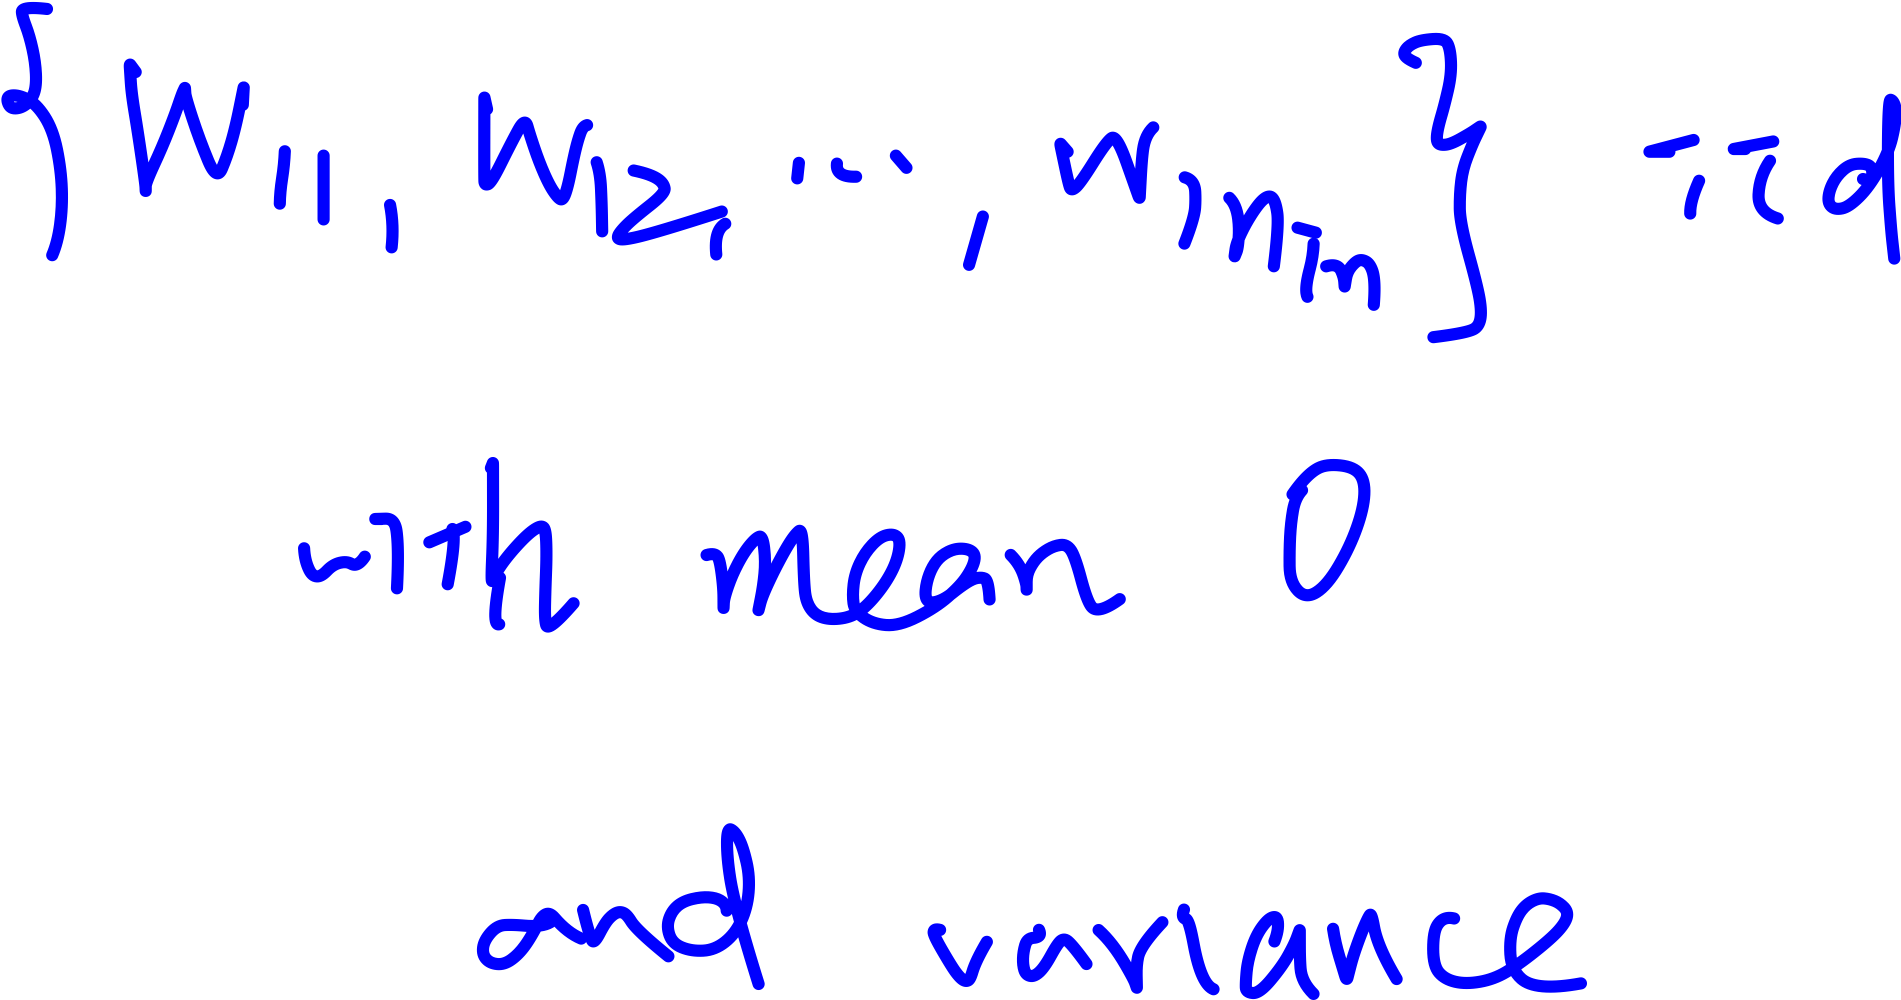 {W₁₁, W₁₂, ..., W₁ₙᵢₙ} iid
with mean 0
and variance